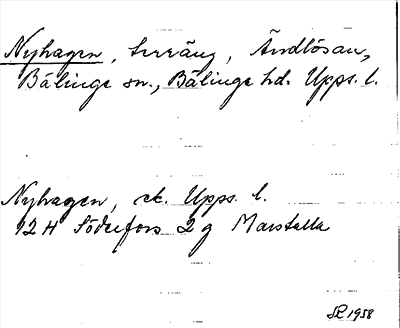 Nyhagen, Surräng, Ändlösan,
Bälinge sn., Bälinge hd. Upps. l.
Nyhagen, ek. Upps. l.
12 H Söderfors 2 g Marstalla
1958